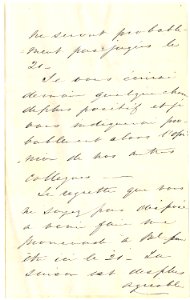 ne seront probable-
ment pas jugées le
20-
Je vous écrirai
demain quelque chose
de plus positif et je
vous indiquerai pro-
bablement alors l'opi-
nion de nos autres
collègues —
Je regrette que vous
ne soyez pas disposé
à venir faire une
promenade à
ici le 20 - La
saison est des plus
agréable